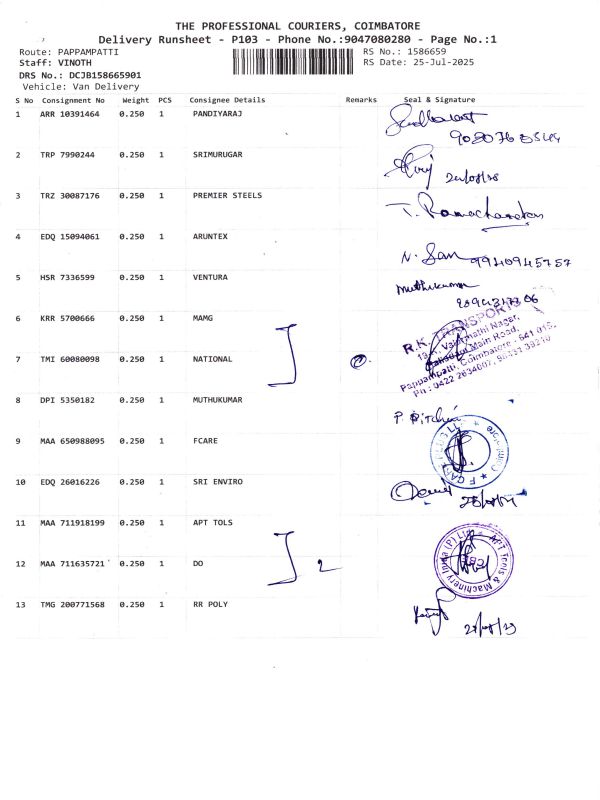 THE PROFESSIONAL COURIERS, COIMBATORE
Delivery Runsheet - P103 - Phone No.:9047080280 - Page No.:1
Route: PAPPAMPATTI RS No.: 1586659
Staff: VINOTH RS Date: 25-Jul-2025
DRS No.: DCJB158665901
Vehicle: Van Delivery
S No Consignment No Weight PCS Consignee Details Remarks Seal & Signature
1 ARR 10391464 0.250 1 PANDIYARAJ
2 TRP 7990244 0.250 1 SRIMURUGAR
3 TRZ 30087176 0.250 1 PREMIER STEELS T. Ramachandran
4 EDQ 15094061 0.250 1 ARUNTEX N. San 9940945757
5 HSR 7336599 0.250 1 VENTURA Muthukumar
6 KRR 5700666 0.250 1 MAMG R.K. TRANSPORTS
7 TMI 60080098 0.250 1 NATIONAL
Pappampatti, Coimbatore - 641 016.
8 DPI 5350182 0.250 1 MUTHUKUMAR
9 MAA 650988095 0.250 1 FCARE
10 EDQ 26016226 0.250 1 SRI ENVIRO
11 MAA 711918199 0.250 1 APT TOLS
12 MAA 711635721 0.250 1 DO 2 APT Tools & Machinery India (P) Ltd
13 TMG 200771568 0.250 1 RR POLY